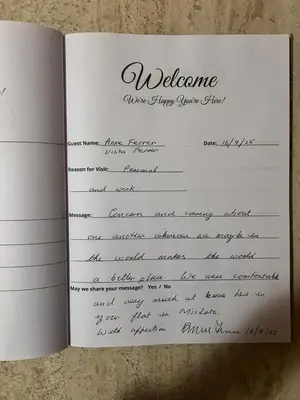 Welcome
We're Happy You're Here!
Guest Name: Anne Ferrer Date: 16/9/25
Vishu Ferrer
Reason for Visit: Personal
and work
Message: Concern and caring about
one another wherever we maybe in
the world makes the world
a better place. We were comfortable
May we share your message? Yes / No
and very much at home here in
your flat in
With affection Anne Ferrer 16/9/25